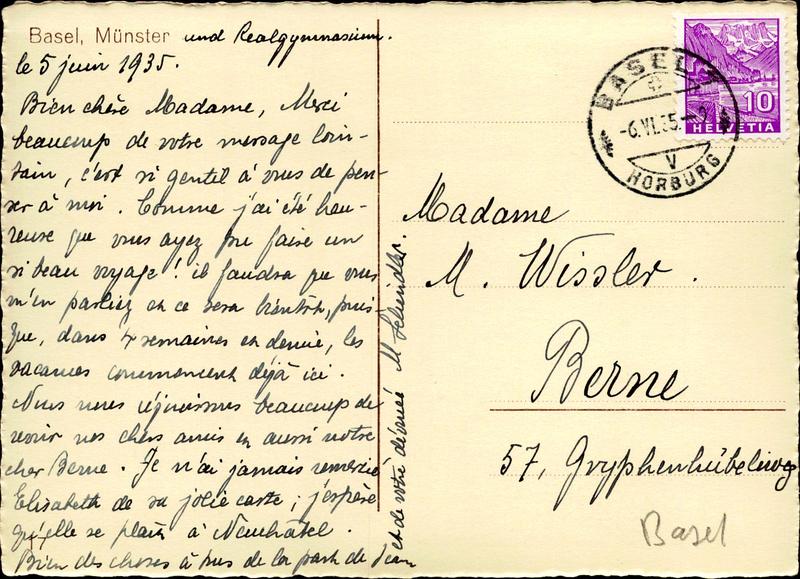 Basel, Münster und Realgymnasium.
le 5 juin 1935.
Bien chère Madame, Merci
beaucoup de votre message loin-
tain, c'est si gentil à vous de pen-
ser à moi. Comme j'ai été heu-
reuse que vous ayez pu faire un
si beau voyage! il faudra que vous
m'en parliez et ce sera bientôt, puis-
que, dans 4 semaines et demie, les
vacances commencent déjà ici.
Nous nous réjouissons beaucoup de
revoir nos chers amis et aussi notre
cher Berne. Je n'ai jamais remercié
Elisabeth de sa jolie carte; j'espère
qu'elle se plaît à Neuchâtel.
Bien des choses à tous de la part de Jean
et de votre dévouée M Schindler.
BASEL
-6.VI.35.-9
V
HORBURG
10
HELVETIA
Madame
M. Wissler.
Berne
57, Gryphenhübeliweg
Basel